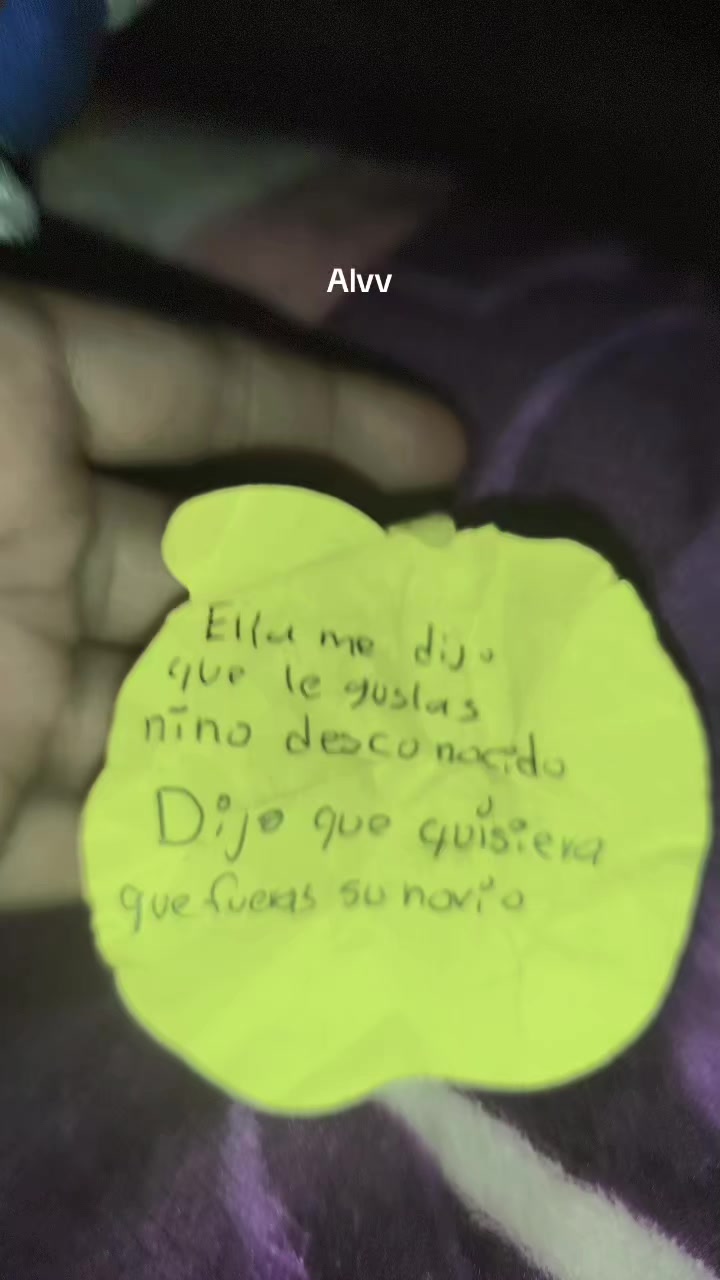 Alvv
Ella me dijo
que le gustas
nino desconocido
Dijo que quisiera
que fueras su novio